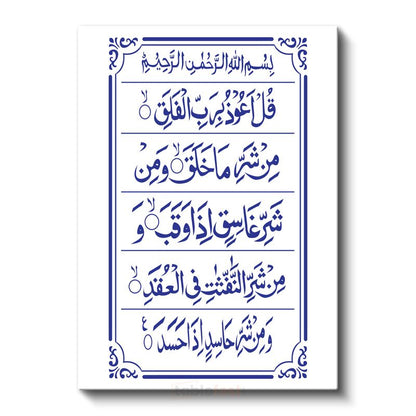 بِسْمِ اللهِ الرَّحْمٰنِ الرَّحِيْمِ
قُلْ اَعُوْذُ بِرَبِّ الْفَلَقِ ۙ
مِنْ شَرِّ مَا خَلَقَ ۙ وَمِنْ
شَرِّ غَاسِقٍ اِذَا وَقَبَ ۙ وَ
مِنْ شَرِّ النَّفّٰثٰتِ فِى الْعُقَدِ ۙ
وَمِنْ شَرِّ حَاسِدٍ اِذَا حَسَدَ ۠